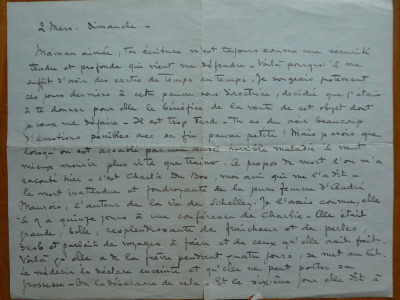 2 Mars. Dimanche -
Maman aimée, ton écriture m'est toujours comme une sécurité
tendre et profonde qui vient me défendre - Voilà pourquoi il me
suffit d'avoir des cartes de temps en temps. Je songeais justement
ces jours derniers à cette pauvre directrice, décidée que j'étais
à te donner pour elle le bénéfice de la vente de cet objet dont
je veux me défaire - Il est trop tard - Tu as du avoir beaucoup
d'émotions pénibles avec sa fin pauvre petite ! Mais je crois que
lorsqu'on est accablé par une aussi terrible maladie il vaut
mieux mourir plus vite que traîner. A propos de mort l'on m'a
raconté hier - c'est Charlie Du Bos, mon ami qui me l'a dit -
la mort inattendue et foudroyante de la jeune femme d'André
Maurois, l'auteur de la vie de Schelley. Je l'avais connue, elle
il y a quinze jours à une conférence de Charlie - Elle était
grande, belle, resplendissante de fraîcheur et de perles,
et parlait de voyages à faire et de ceux qu'elle avait fait.
Voilà qu'elle a de la fièvre pendant quatre jours, se met au lit.
Le médecin la déclare enceinte et qu'elle ne peut porter sa
grossesse - On la débarrasse de cela - Et le sixième jour elle dit à